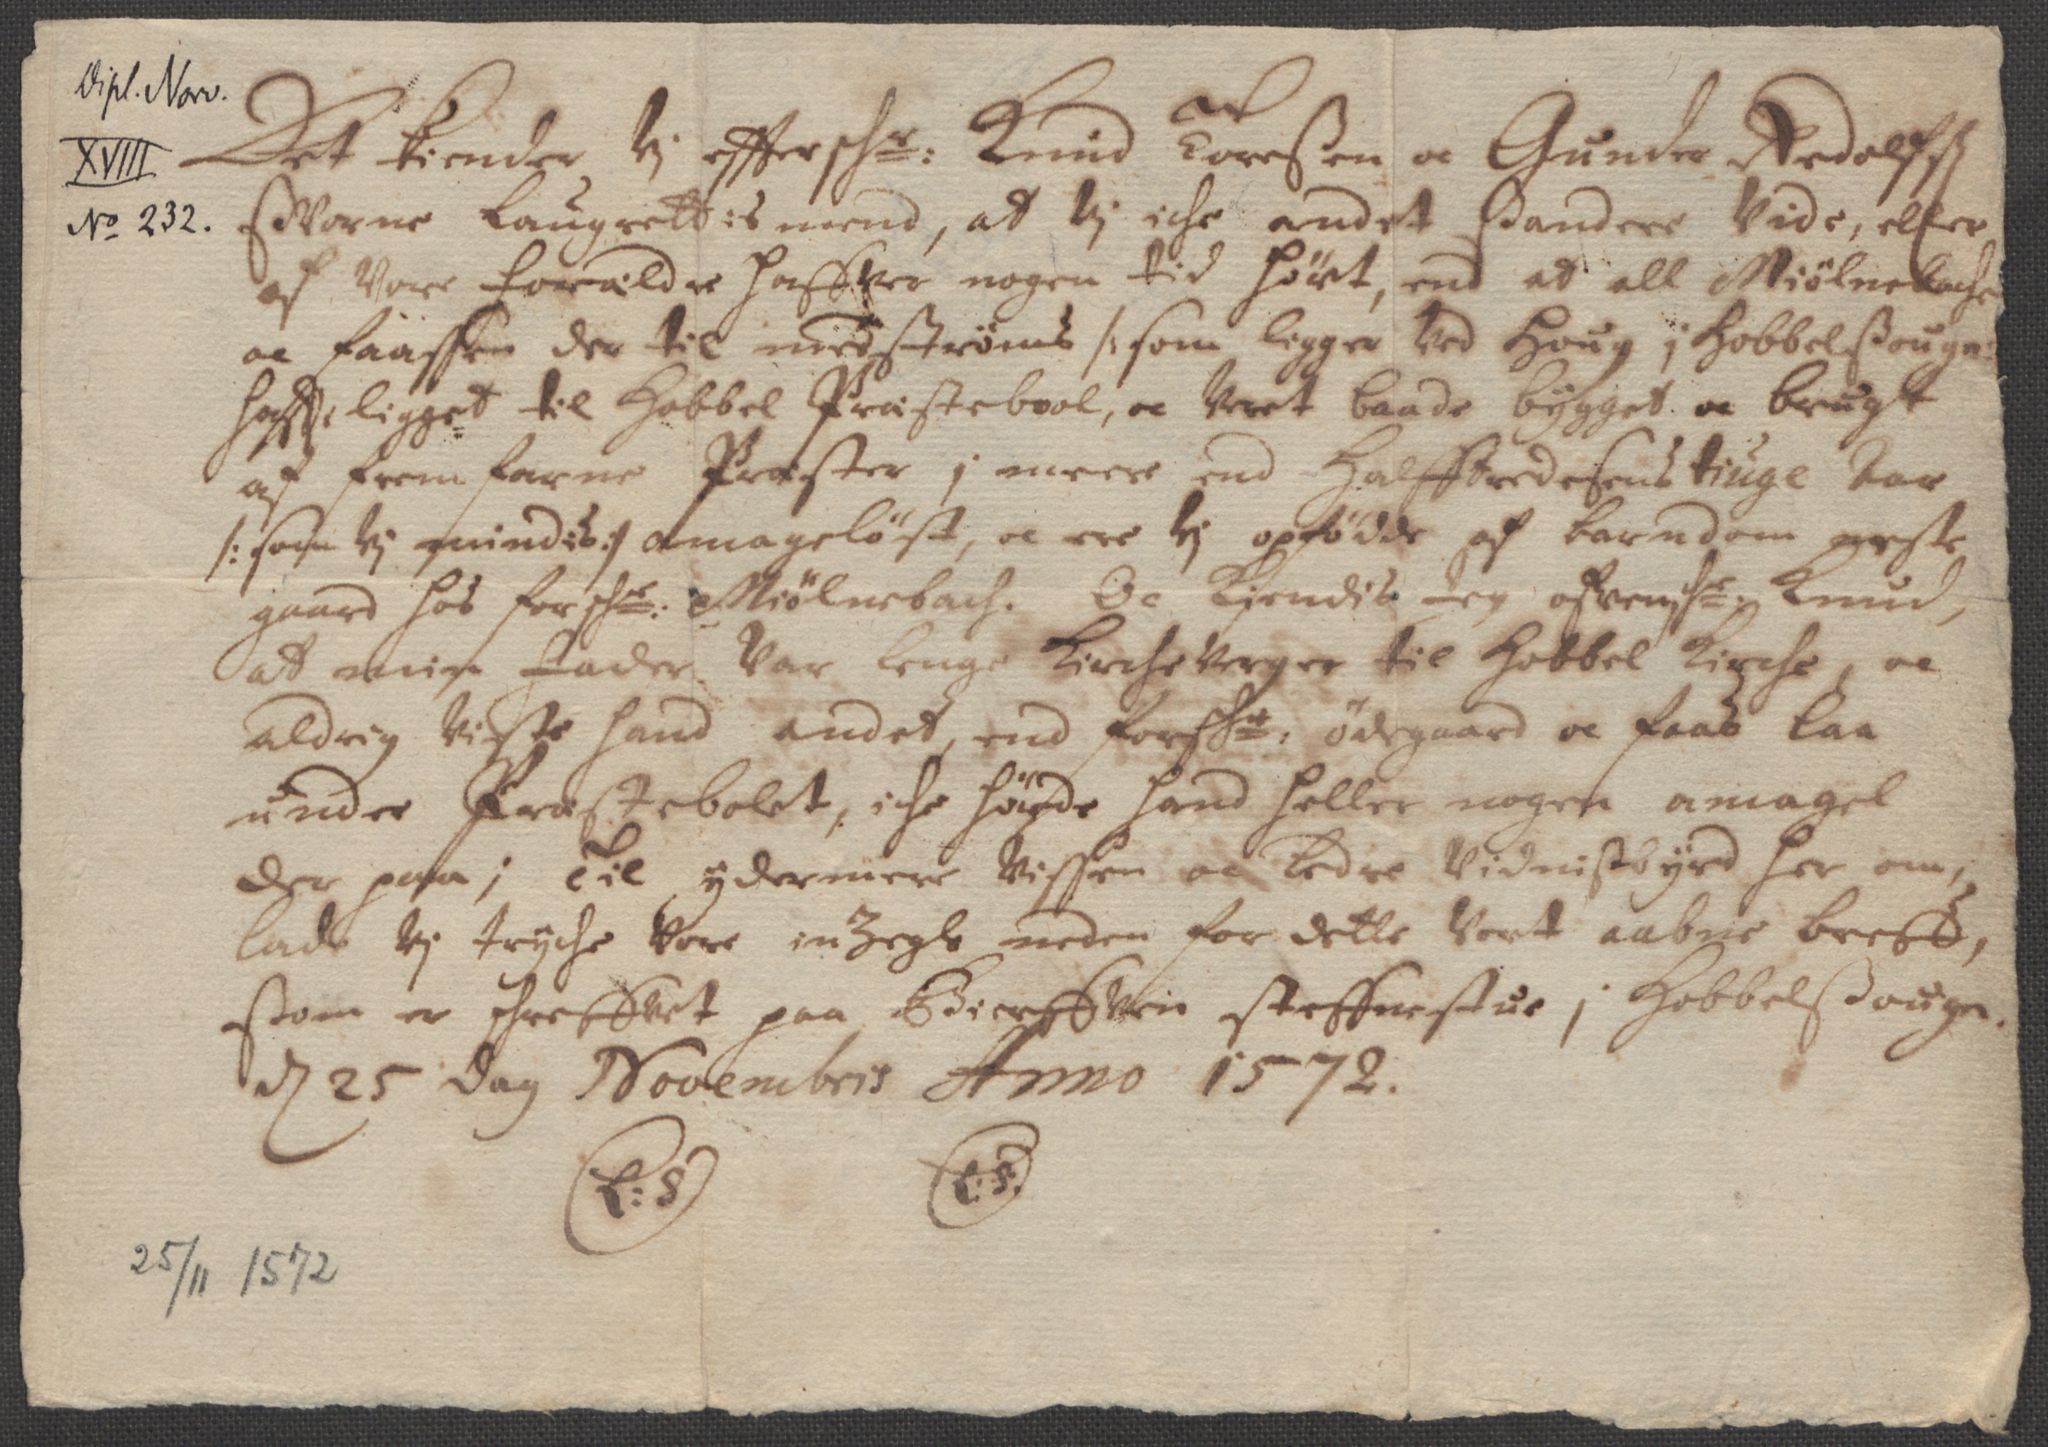 Dipl. Norv.
XVIII
No 232.
Det kiender vj effterschr: Knud Toreßen oc Gunder Redolffß
ßvorne Laugrettis mend, at vj iche andet ßandere vide, eller
af vore forældre haffver nogen tid hört, end at all Miölnebache
oc faassen der til nedströms /: som ligger ved Houg j Hobbelßougn:
haffr: ligget til Hobbel Præstebool, oc veret baade bygget oc brugt
af fremfarne Præster j meere end halfftredesens tiuge Aar
/: som vj mindis :/ amageløst, oc ere vj opfödde af barndom neste
gaard hos forschr: Miölnebach. Oc kiendis Jeg ofvenschr: Knud,
at min Fader var lenge kircheverger til Hobbel kirche, oc
aldrig viste hand andet, end forschr: ödegaard oc faas laa
under Præstebolet, iche hörde hand heller nogen amagel
der paa; Til ydermere vissen oc bedre vidnißbyrd her om,
lade vj tryche vore inZegle neden for dette vort aabne breff,
ßom er schreffvet paa steffnestue j Hobbelßougn.
d 25 dag Novembris Anno 1572.
L:S L:S.
25/11 1572